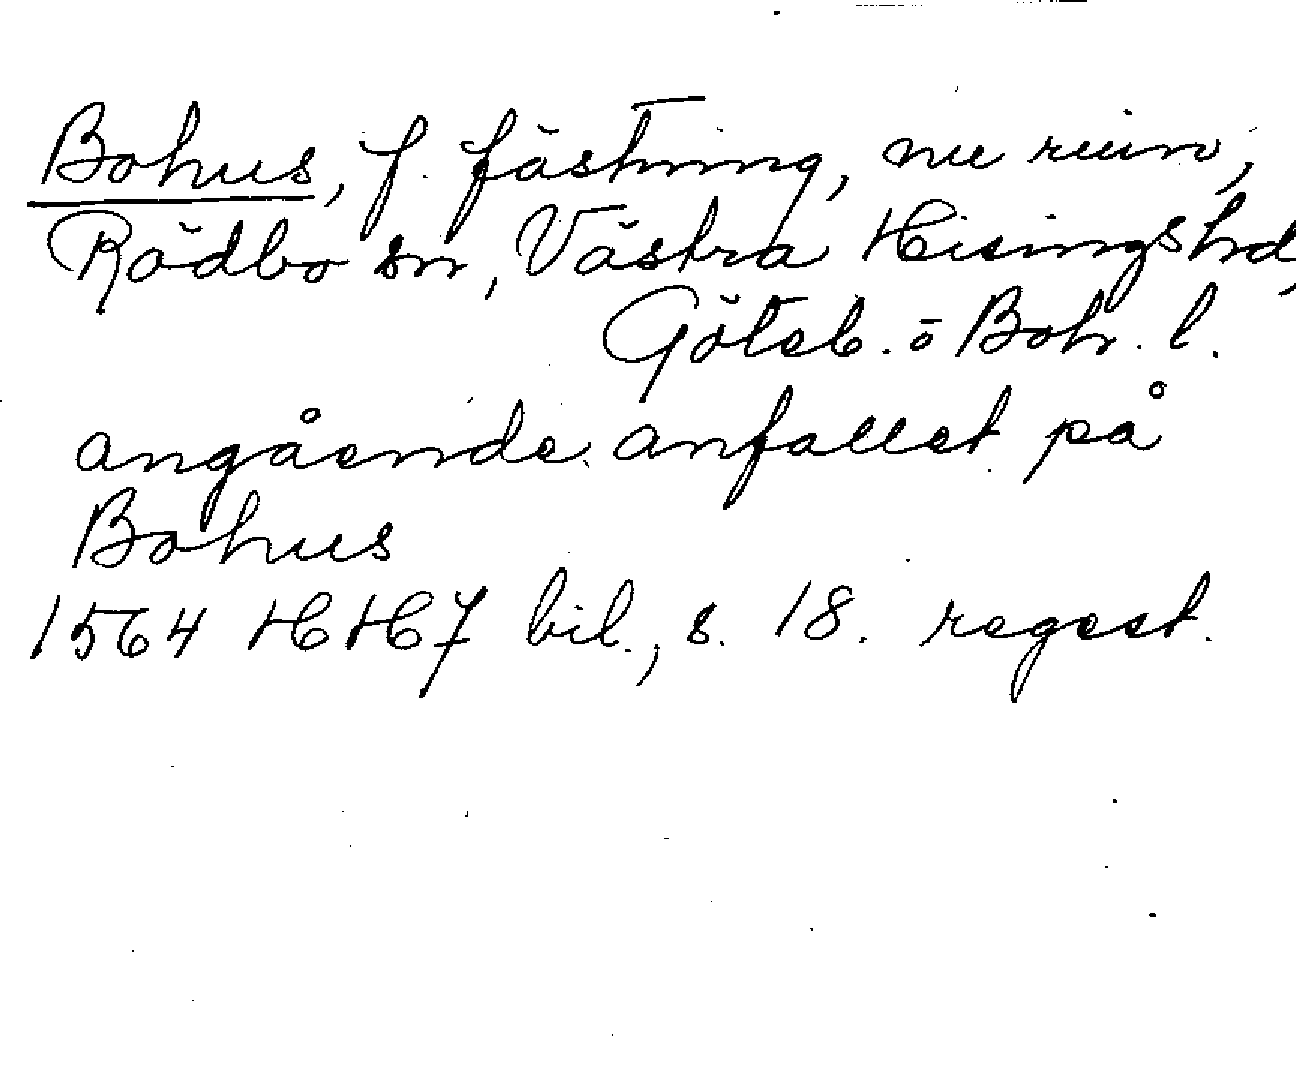 Bohus, f. fästning, nu ruin,
Rödbo sn, Västra Hisings hd,
Göteb. o Boh. l.
angående anfallet på
Bohus
1564 HH 7 bil., s. 18. regest.